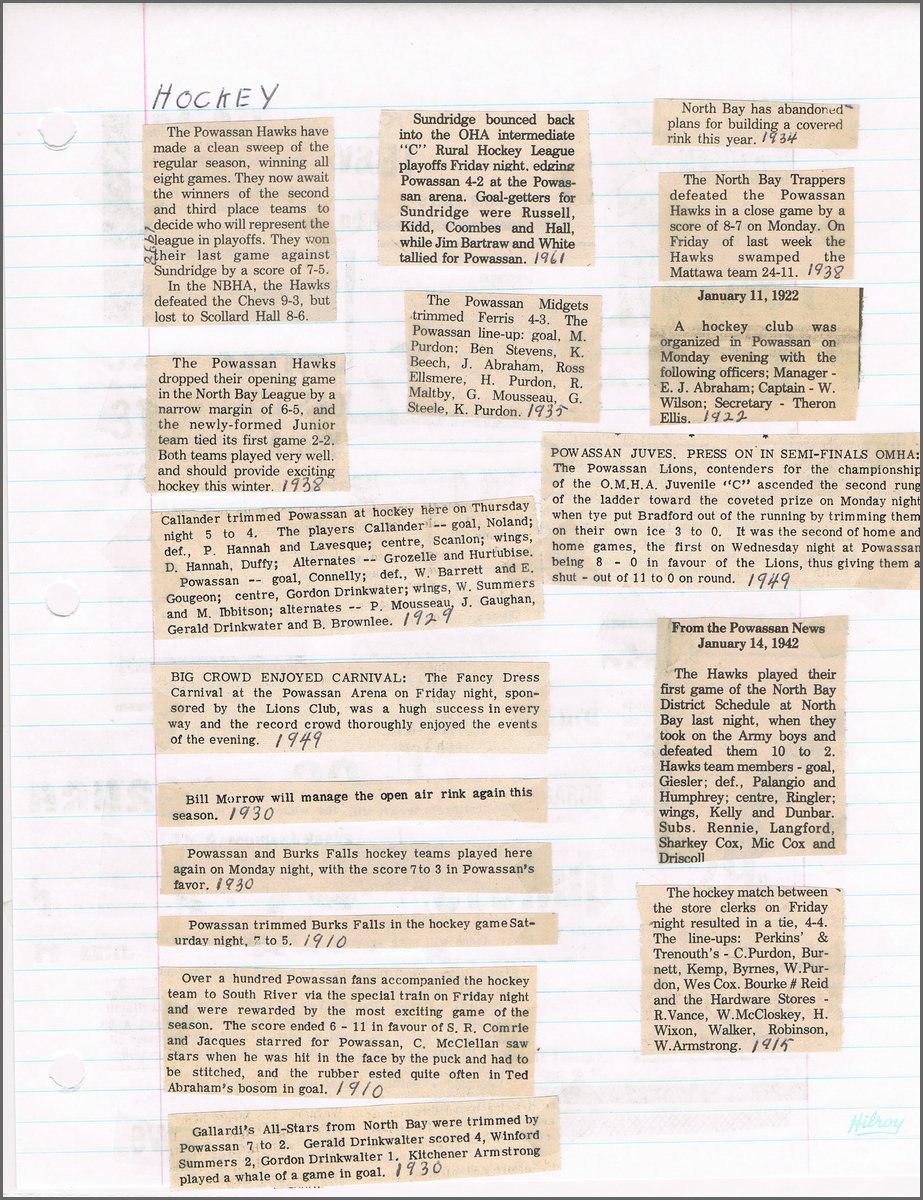 HOCKEY
The Powassan Hawks have
made a clean sweep of the
regular season, winning all
eight games. They now await
the winners of the second
and third place teams to
decide who will represent the
league in playoffs. They won
their last game against
Sundridge by a score of 7-5.
In the NBHA, the Hawks
defeated the Chevs 9-3, but
lost to Scollard Hall 8-6.
The Powassan Hawks
dropped their opening game
in the North Bay League by a
narrow margin of 6-5, and
the newly-formed Junior
team tied its first game 2-2.
Both teams played very well.
and should provide exciting
hockey this winter. 1938
Sundridge bounced back
into the OHA intermediate
"C" Rural Hockey League
playoffs Friday night, edging
Powassan 4-2 at the Powas-
san arena. Goal-getters for
Sundridge were Russell,
Kidd, Coombes and Hall,
while Jim Bartraw and White
tallied for Powassan. 1961
The Powassan Midgets
trimmed Ferris 4-3. The
Powassan line-up: goal, M.
Purdon; Ben Stevens, K.
Beech, J. Abraham, Ross
Ellsmere, H. Purdon, R.
Maltby, G. Mousseau, G.
Steele, K. Purdon. 1935
North Bay has abandoned
plans for building a covered
rink this year. 1934
The North Bay Trappers
defeated the Powassan
Hawks in a close game by a
score of 8-7 on Monday. On
Friday of last week the
Hawks swamped the
Mattawa team 24-11. 1938
January 11, 1922
A hockey club was
organized in Powassan on
Monday evening with the
following officers; Manager -
E. J. Abraham; Captain - W.
Wilson; Secretary - Theron
Ellis. 1922
POWASSAN JUVES. PRESS ON IN SEMI-FINALS OMHA:
The Powassan Lions, contenders for the championship
of the O.M.H.A. Juvenile "C" ascended the second rung
of the ladder toward the coveted prize on Monday night
when tye put Bradford out of the running by trimming them
on their own ice 3 to 0. It was the second of home and
home games, the first on Wednesday night at Powassan
being 8 - 0 in favour of the Lions, thus giving them a
shut - out of 11 to 0 on round. 1949
Callander trimmed Powassan at hockey here on Thursday
night 5 to 4. The players Callander -- goal, Noland;
def., P. Hannah and Lavesque; centre, Scanlon; wings,
D. Hannah, Duffy; Alternates -- Grozelle and Hurtubise.
Powassan -- goal, Connelly; def., W. Barrett and E.
Gougeon; centre, Gordon Drinkwater; wings, W. Summers
and M. Ibbitson; alternates -- P. Mousseau, J. Gaughan,
Gerald Drinkwater and B. Brownlee. 1929
BIG CROWD ENJOYED CARNIVAL: The Fancy Dress
Carnival at the Powassan Arena on Friday night, spon-
sored by the Lions Club, was a hugh success in every
way and the record crowd thoroughly enjoyed the events
of the evening. 1949
Bill Morrow will manage the open air rink again this
season. 1930
Powassan and Burks Falls hockey teams played here
again on Monday night, with the score 7 to 3 in Powassan's
favor. 1930
Powassan trimmed Burks Falls in the hockey game Sat-
urday night, 7 to 5. 1910
Over a hundred Powassan fans accompanied the hockey
team to South River via the special train on Friday night
and were rewarded by the most exciting game of the
season. The score ended 6 - 11 in favour of S. R. Comrie
and Jacques starred for Powassan, C. McClellan saw
stars when he was hit in the face by the puck and had to
be stitched, and the rubber ested quite often in Ted
Abraham's bosom in goal. 1910
Gallardi's All-Stars from North Bay were trimmed by
Powassan 7 to 2. Gerald Drinkwalter scored 4, Winford
Summers 2, Gordon Drinkwalter 1. Kitchener Armstrong
played a whale of a game in goal. 1930
From the Powassan News
January 14, 1942
The Hawks played their
first game of the North Bay
District Schedule at North
Bay last night, when they
took on the Army boys and
defeated them 10 to 2.
Hawks team members - goal,
Giesler; def., Palangio and
Humphrey; centre, Ringler;
wings, Kelly and Dunbar.
Subs. Rennie, Langford,
Sharkey Cox, Mic Cox and
Driscoll
The hockey match between
the store clerks on Friday
night resulted in a tie, 4-4.
The line-ups: Perkins' &
Trenouth's - C.Purdon, Bur-
nett, Kemp, Byrnes, W.Pur-
don, Wes Cox. Bourke # Reid
and the Hardware Stores -
R.Vance, W.McCloskey, H.
Wixon, Walker, Robinson,
W.Armstrong. 1915
Hilroy